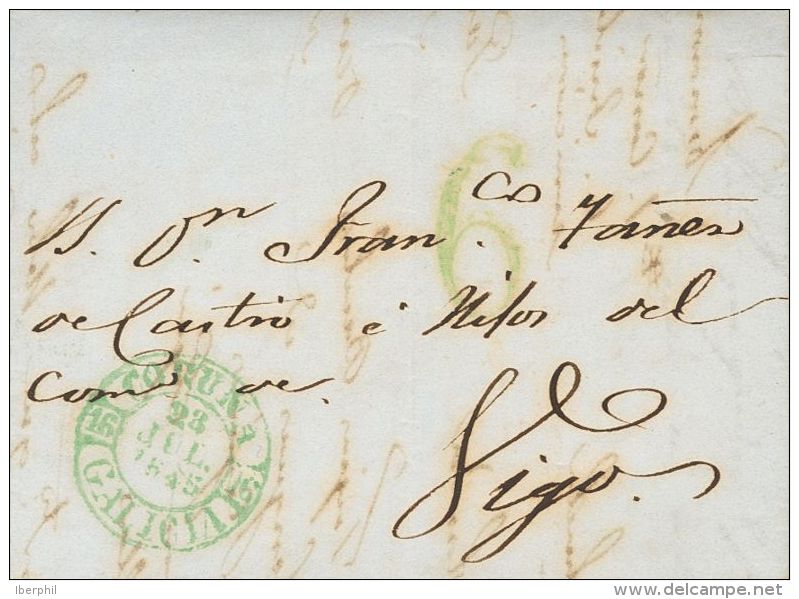 6
S. Dn. Fran.co Yañez
de Castro é Hijos del
Comº de.
Vigo.
CORUÑA
23
JUL.
1845
GALICIA
Iberphil
www.delcampe.net